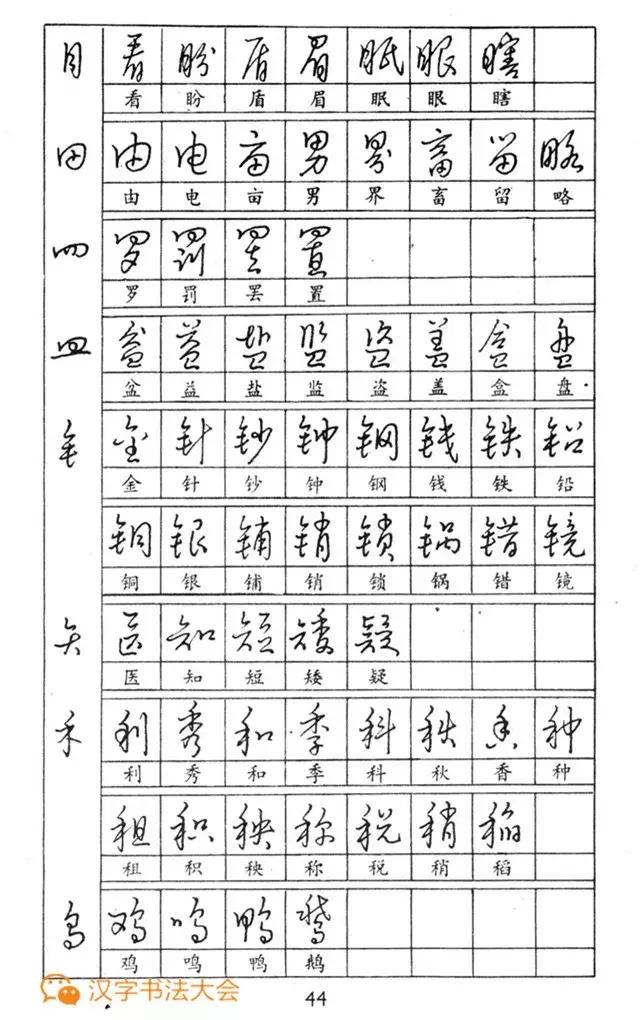 目 看 盼 盾 眉 眠 眼 瞎
看 盼 盾 眉 眠 眼 瞎
田 由 电 亩 男 界 畜 留 略
由 电 亩 男 界 畜 留 略
罒 罗 罚 罢 置
罗 罚 罢 置
皿 盆 益 盐 监 盗 盖 盒 盘
盆 益 盐 监 盗 盖 盒 盘
钅 金 针 钞 钟 钢 钱 铁 铅
金 针 钞 钟 钢 钱 铁 铅
铜 银 铺 销 锁 锅 错 镜
铜 银 铺 销 锁 锅 错 镜
矢 医 知 短 矮 疑
医 知 短 矮 疑
禾 利 秀 和 季 科 秋 香 种
利 秀 和 季 科 秋 香 种
租 积 秧 称 税 稍 稻
租 积 秧 称 税 稍 稻
鸟 鸡 鸣 鸭 鹅
鸡 鸣 鸭 鹅
汉字书法大会
44